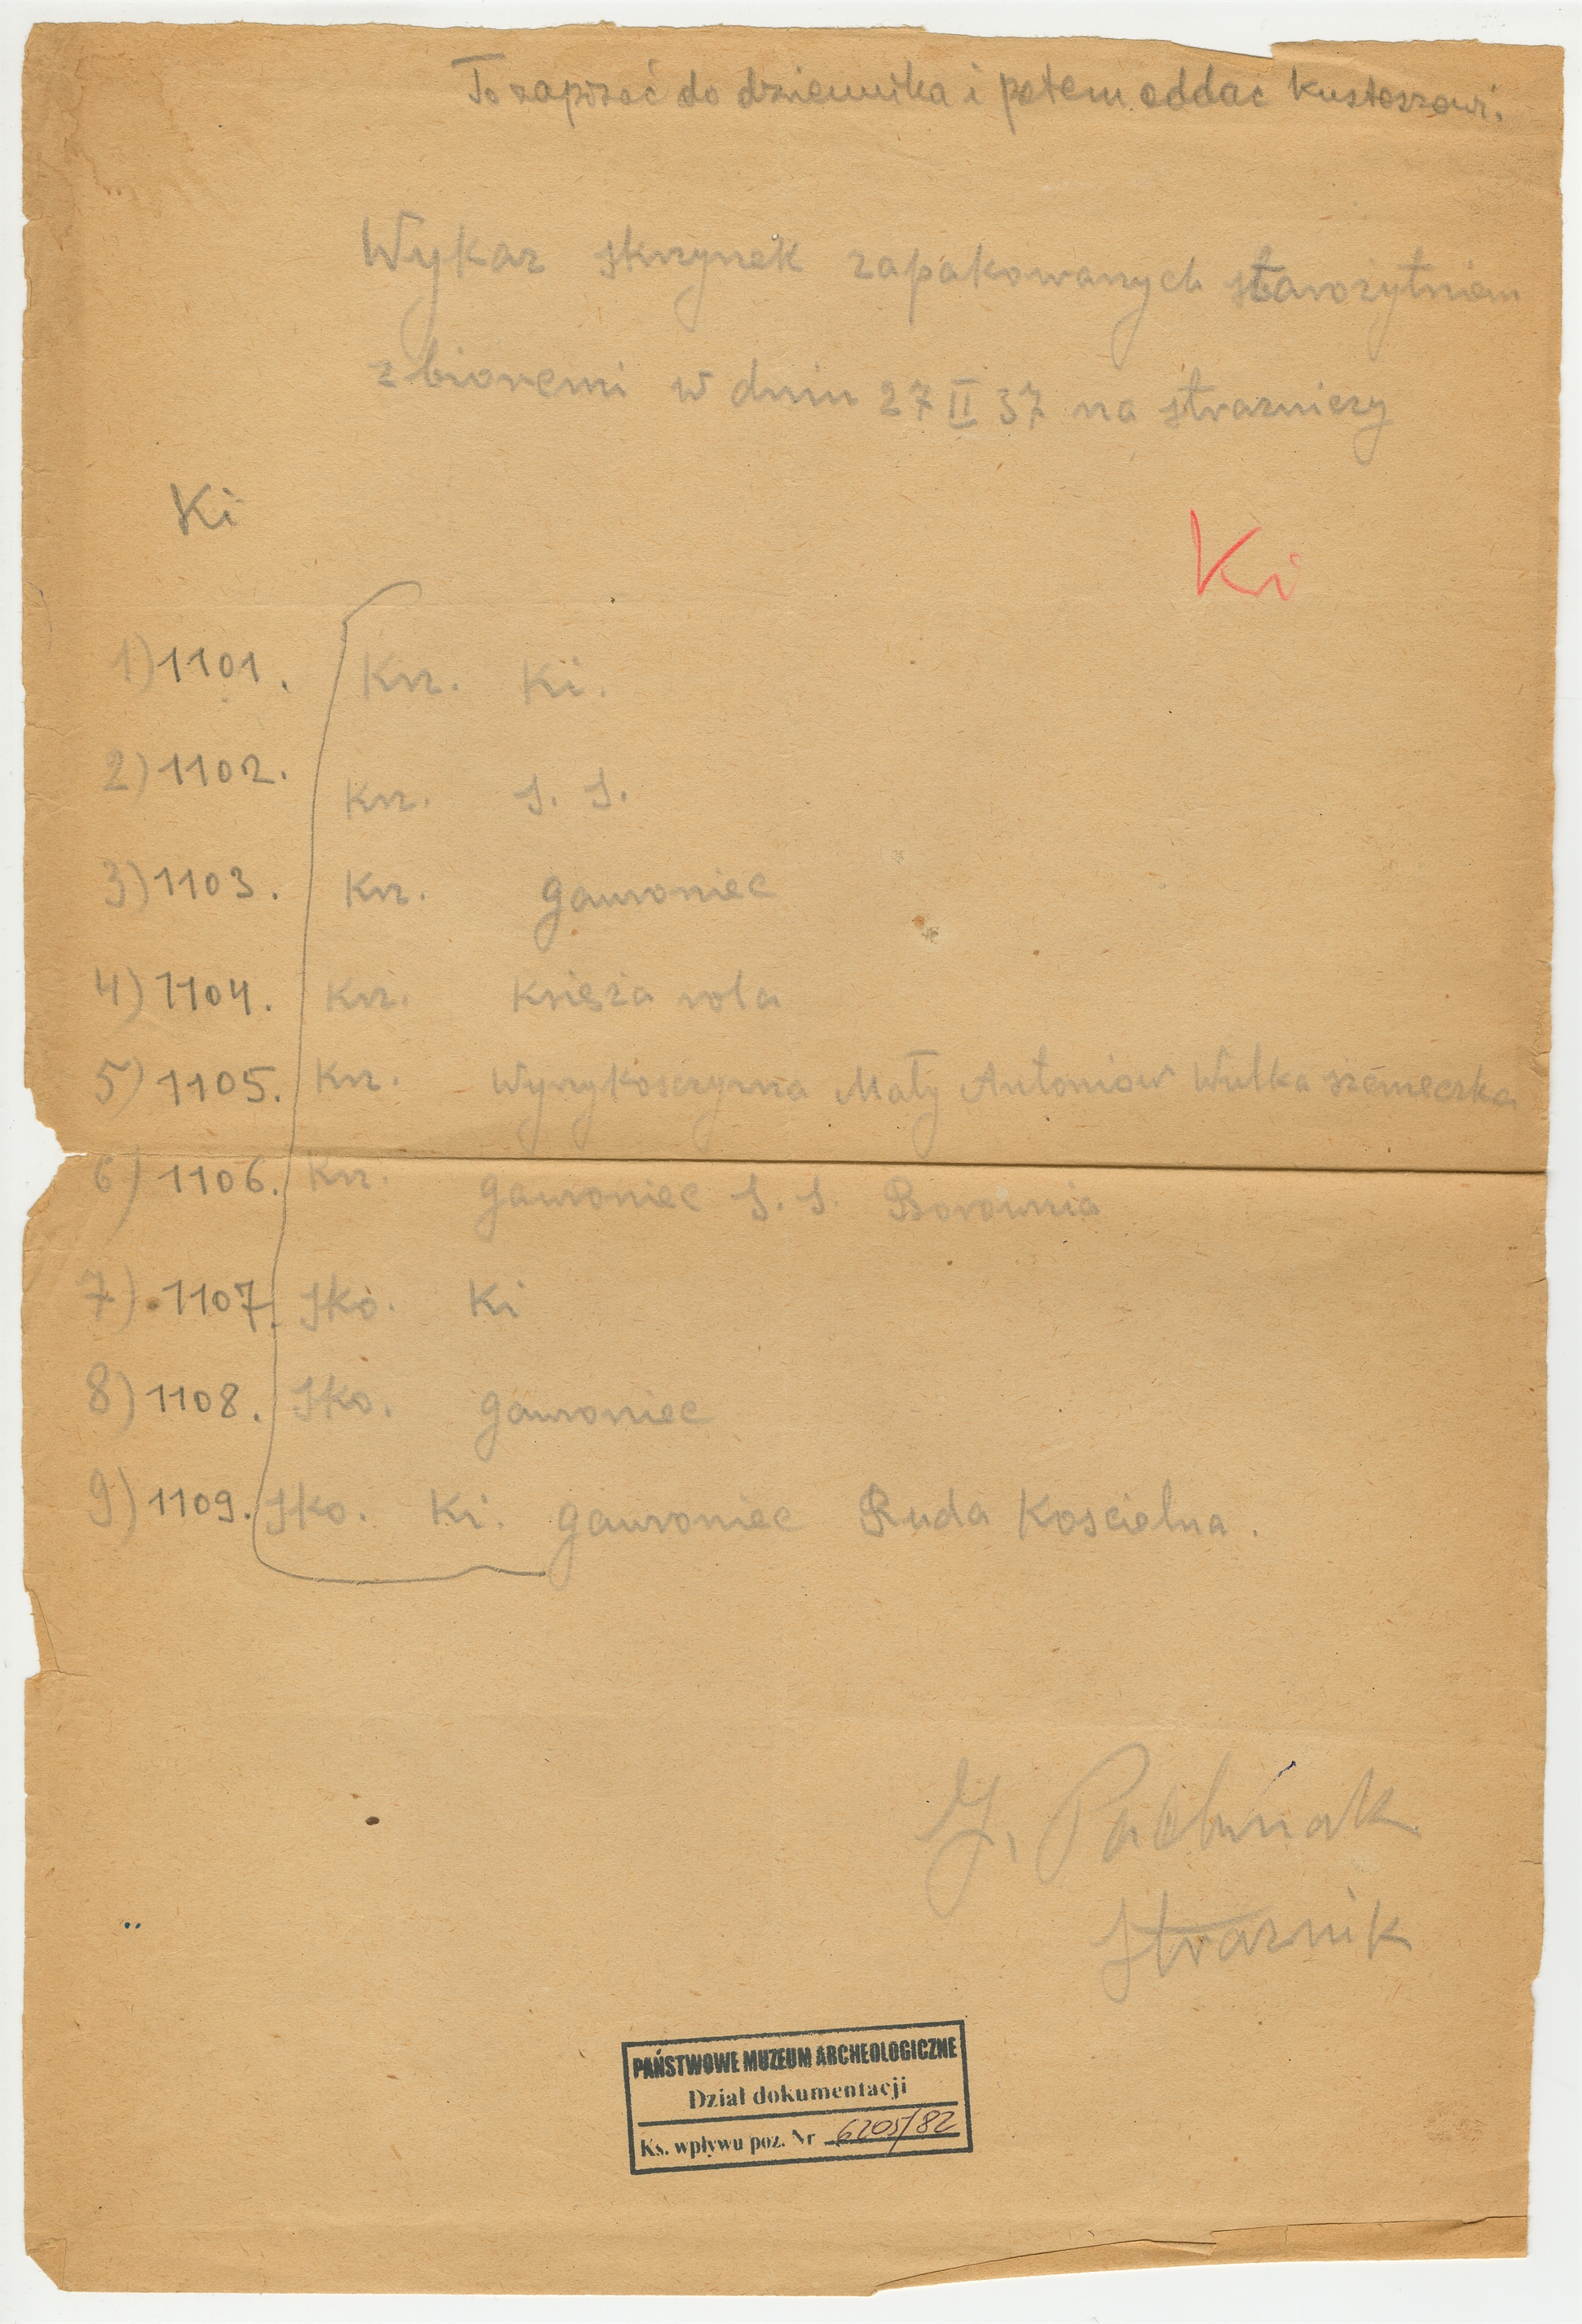 To zapisać do dziennika i potem oddać kustoszowi.
Wykaz skrzynek zapakowanych starożytniem
zbioremi w dniu 27 II 37 na strażniczy
Ki
Ki
1) 1101. Krz. Ki.
2) 1102. Krz. S. S.
3) 1103. Krz. gawroniec
4) 1104. Krz. Księża rola
5) 1105. Krz. Mały Antoniów Wulka
6) 1106. Krz. gawroniec S. S. Borownia
7) 1107. Sko. Ki
8) 1108. Sko. gawroniec
9) 1109. Sko. Ki. gawroniec Ruda Koscielna.
J.
Strażnik
PAŃSTWOWE MUZEUM ARCHEOLOGICZNE
Dział dokumentacji
Ks. wpływu poz. Nr 6205/82